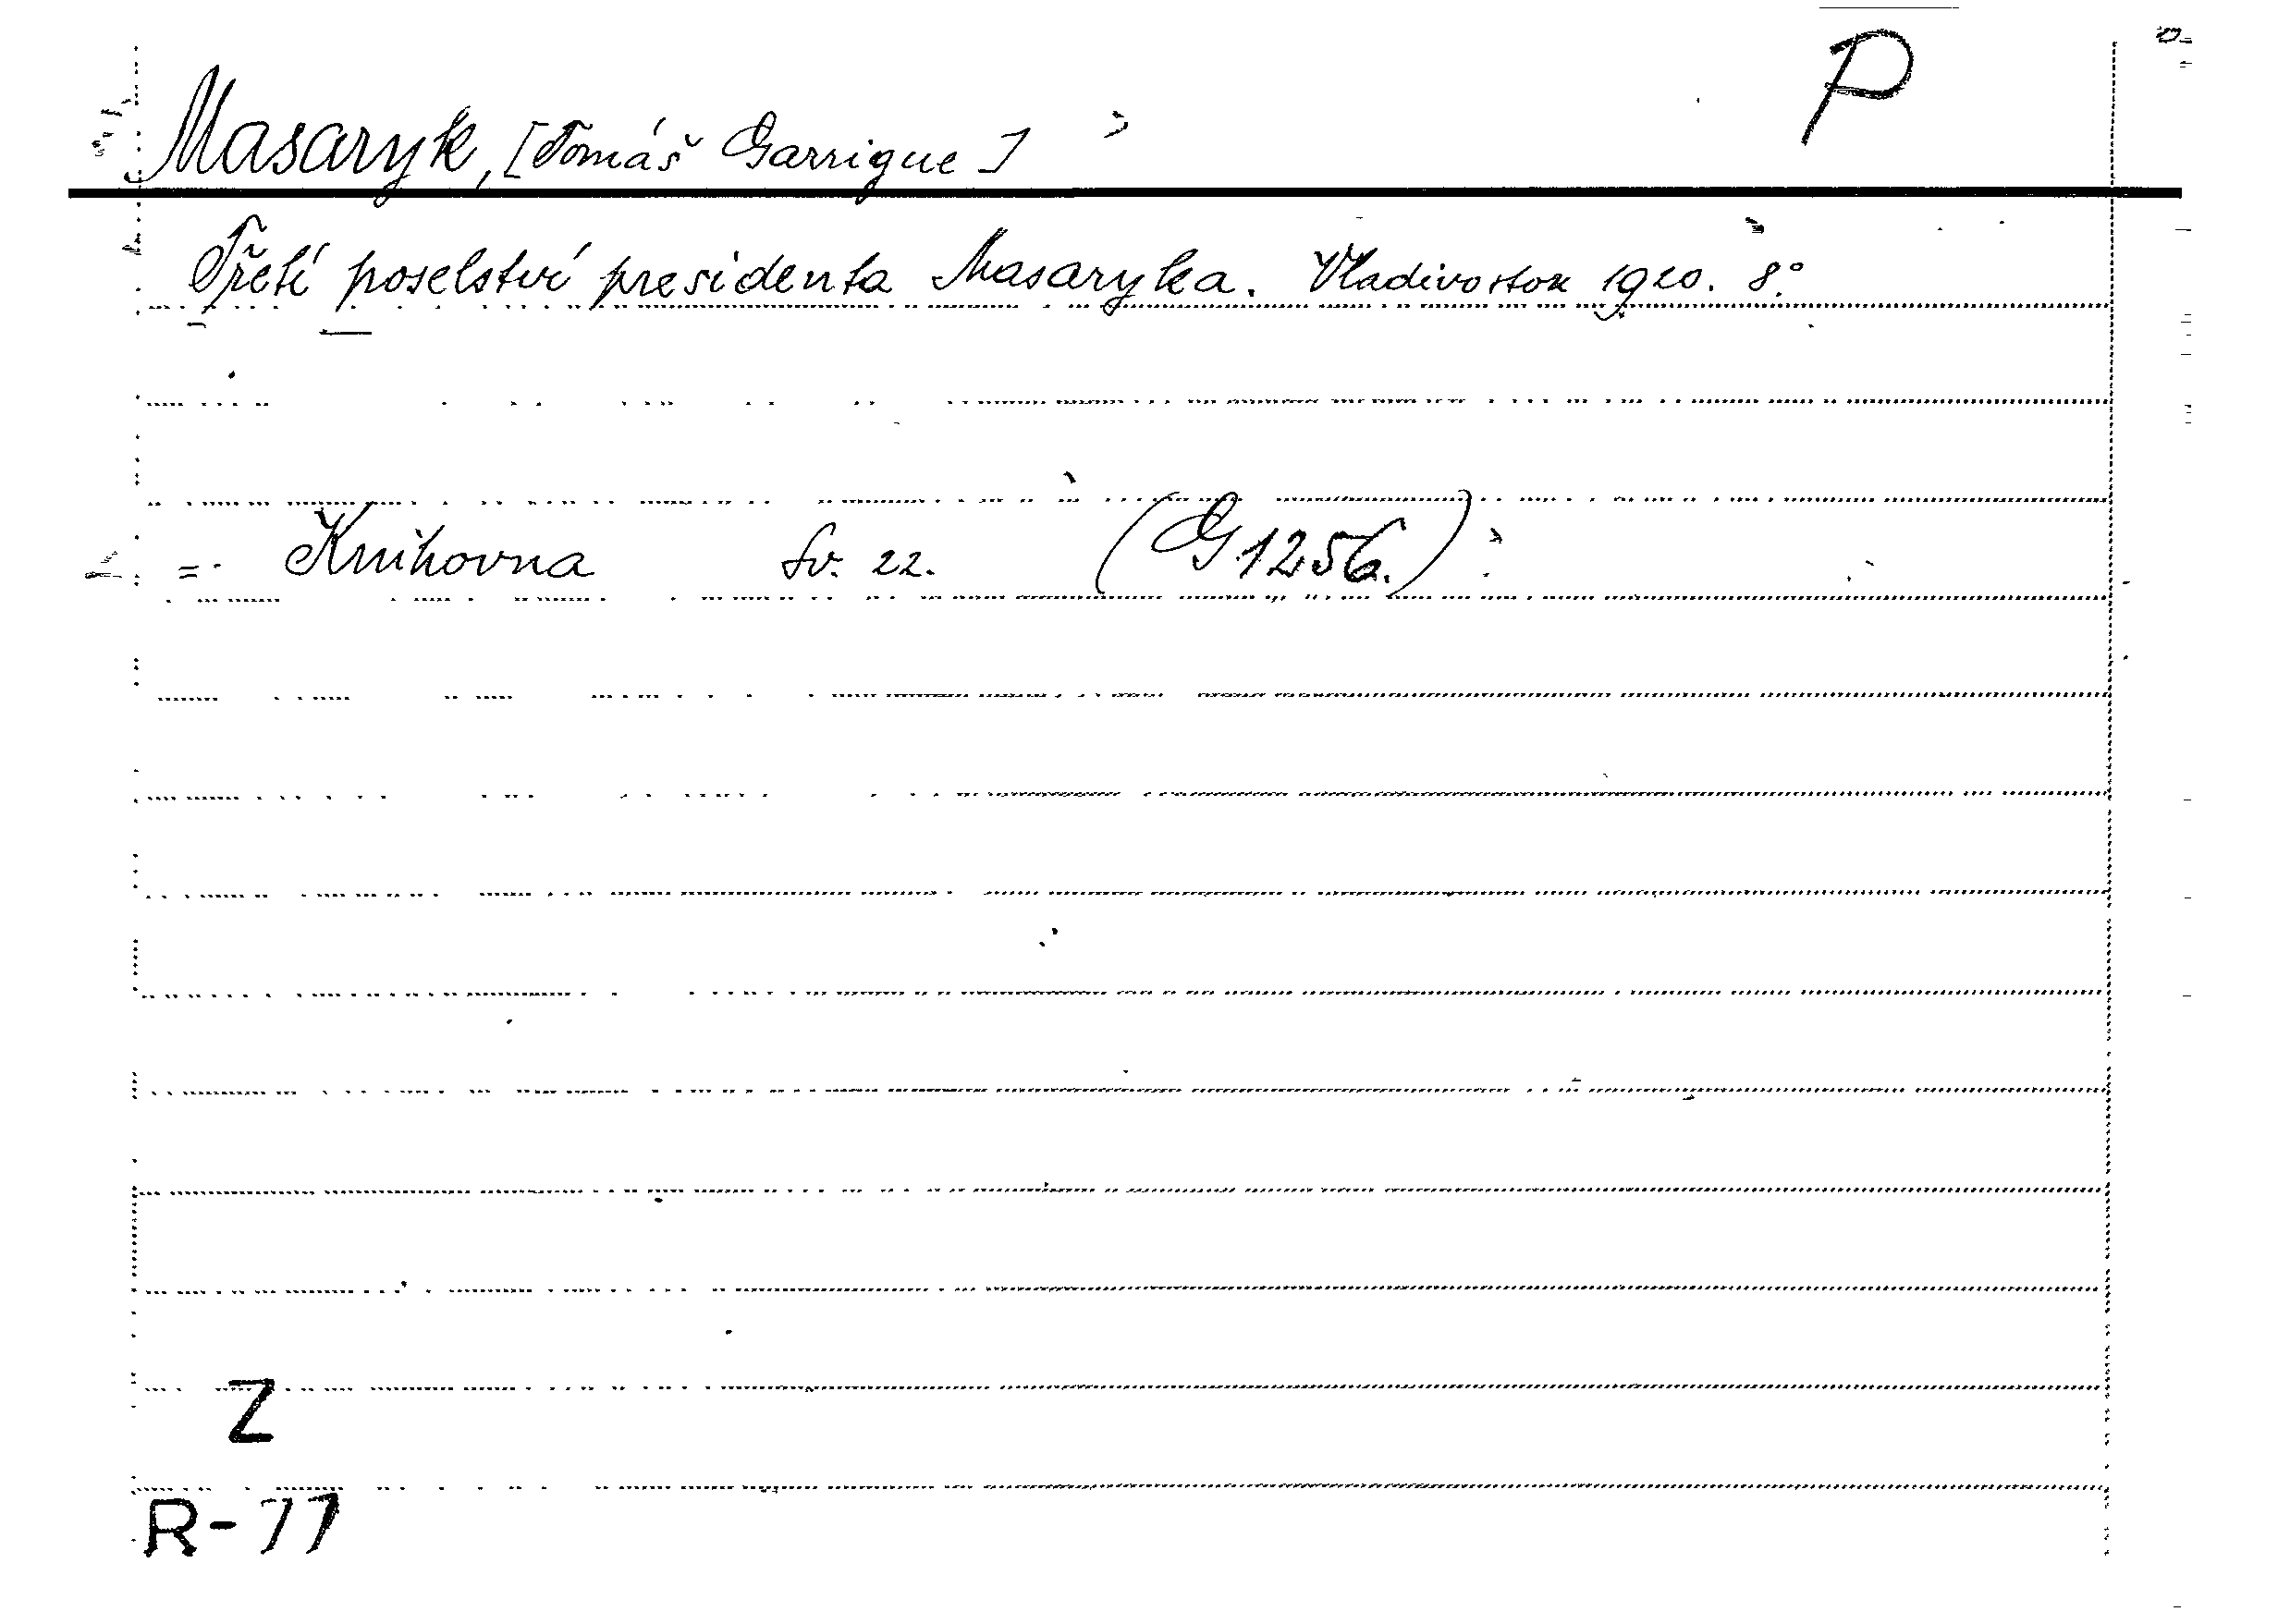 P
Masaryk, [Tomáš Garrigue]
Třetí poselství presidenta Masaryka. Vladivostok 1920. 8.°
= Knihovna Sv. 22. (G 1256.)
Z
R-77